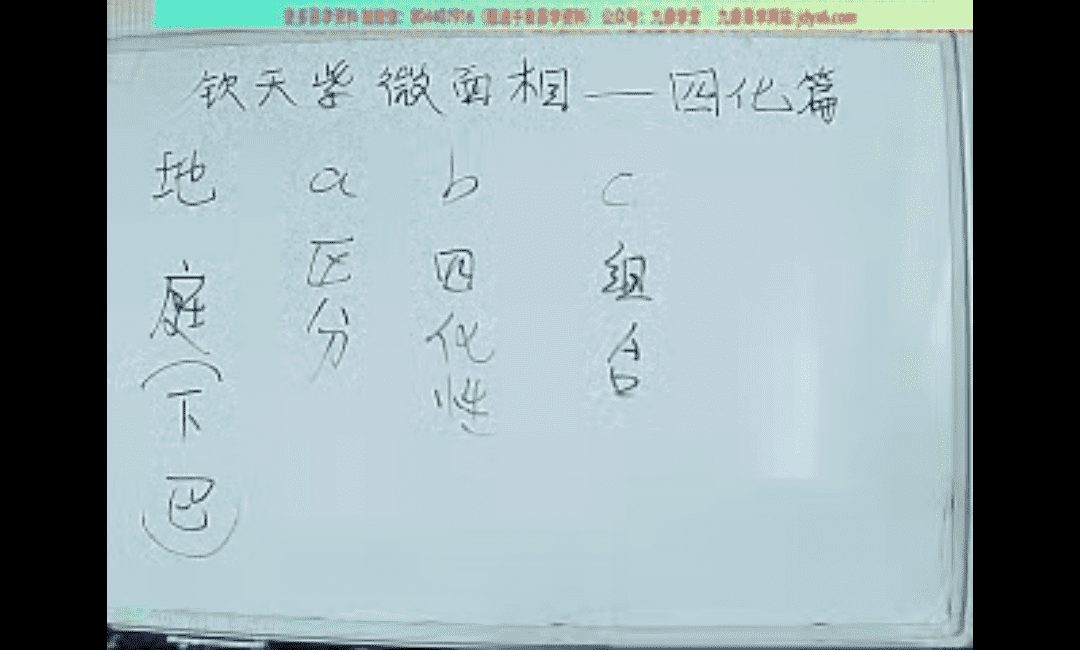 钦天紫微面相——四化篇
地庭(下巴)
a区分
b四化性
c组合